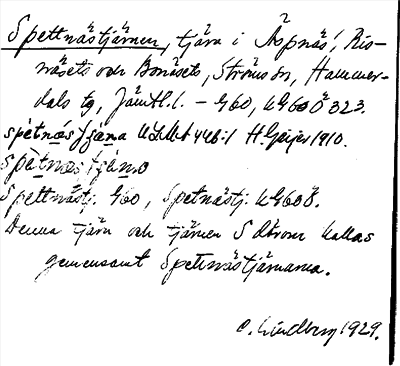 Spettnästjärnen, tjärn i Aspnäs', Ris-
näsets och Bonäsets, Ströms sn, Hammer-
dals tg, Jämtl. l. – G60, UG60Ö 323.
spètnæs/ʃæ̀na ULMA 446:1 H. Geijer 1910.
spètnæs
Spettnästj. G60, Spetnästj. UG60Ö.
Denna tjärn och tjärnen S därom kallas
gemensamt Spettnästjärnarna.
C. Lindberg 1929.